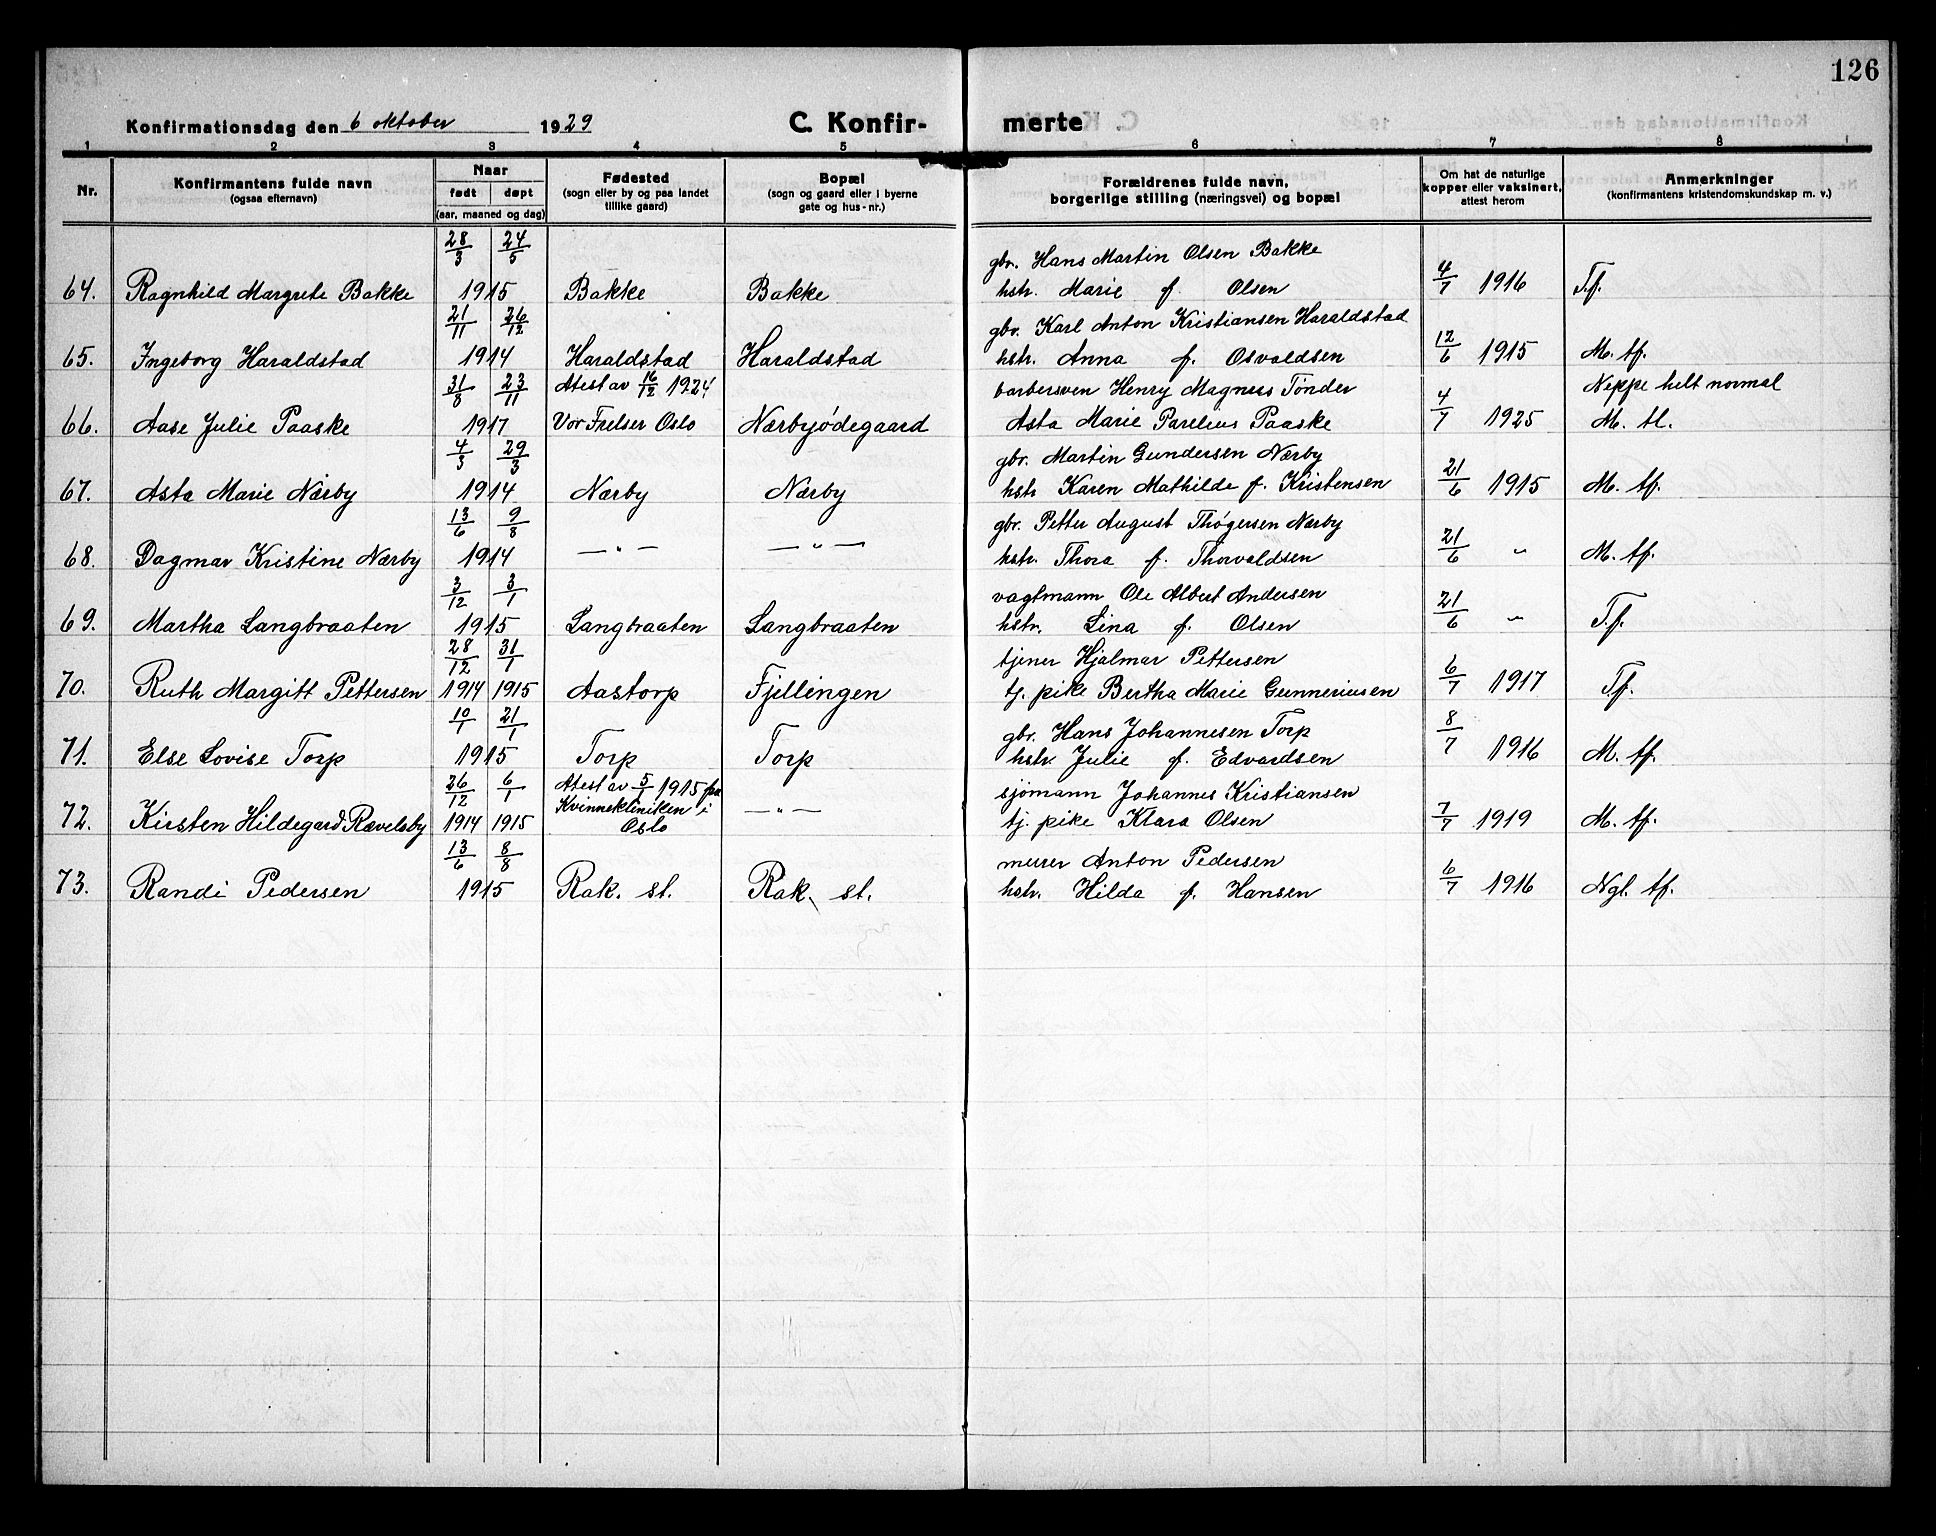 126
Konfirmationsdag den 6 oktober 1929 C. Konfir- merte
1 2 3 4 5 6 7 8
Nr. Konfirmantens fulde navn (ogsaa efternavn) Naar født døpt (aar, maaned og dag) Fødested (sogn eller by og paa landet tillike gaard) Bopæl (sogn og gaard eller i byerne gate og hus-nr.) Forældrenes fulde navn, borgerlige stilling (næringsvei) og bopæl Om hat de naturlige kopper eller vaksinert, attest herom Anmerkninger (konfirmantens kristendomskundskap m. v.)
28/3 24/5 gbr. Hans Martin Olsen Bakke
64. Ragnhild Margrete Bakke 1915 Bakke Bakke hstr. Marie f. Olsen 4/7 1916 T.f.
21/11 26/12 gbr. Karl Anton Kristiansen Haraldstad
65. Ingeborg Haraldstad 1914 Haraldstad Haraldstad hstr. Anna f. Osvaldsen 12/6 1915 M. tf.
31/8 23/11 Atest av 16/12 1924 barbersven Henry Magnus Tønder Neppe helt normal
66. Aase Julie Paaske 1917 Vor Frelser Oslo Nærbyødegaard Asta Marie Parelius Paaske 4/7 1925 M. tl.
4/3 29/3 gbr. Martin Gundersen Nærby
67. Asta Marie Nærby 1914 Nærby Nærby hstr Karen Mathilde f. Kristensen 21/6 1915 M. tf.
13/6 9/8 gbr. Petter August Thøgersen Nærby
68. Dagmar Kristine Nærby 1914 — " — — " — hstr. Thora f. Thorvaldsen 21/6 " M. tf.
3/12 3/1 vagtmann Ole Albert Andersen
69. Martha Langbraaten 1915 Langbraaten Langbraaten hstr. Lina f. Olsen 21/6 " T.f.
28/12 31/1 tjener Hjalmar Pettersen
70. Ruth Margitt Pettersen 1914 1915 Aastorp Fjellingen tj. pike Bertha Marie Gunneriusen 6/7 1917 Tf.
10/1 21/1 gbr. Hans Johannesen Torp
71. Else Lovise Torp 1915 Torp Torp hstr. Julie f. Edvardsen 8/7 1916 M. tf.
26/12 6/1 Atest av 5/1 1915 fra sjømann Johannes Kristiansen
72. Kirsten Hildegard Rævelsby 1914 1915 Kvinnekliniken i Oslo — " — tj. pike Klara Olsen 7/7 1919 M. tf.
13/6 8/8 murer Anton Pedersen
73. Randi Pedersen 1915 Rak. st. Rak. st. hstr. Hilda f. Hansen 6/7 1916 Ngl. tf.